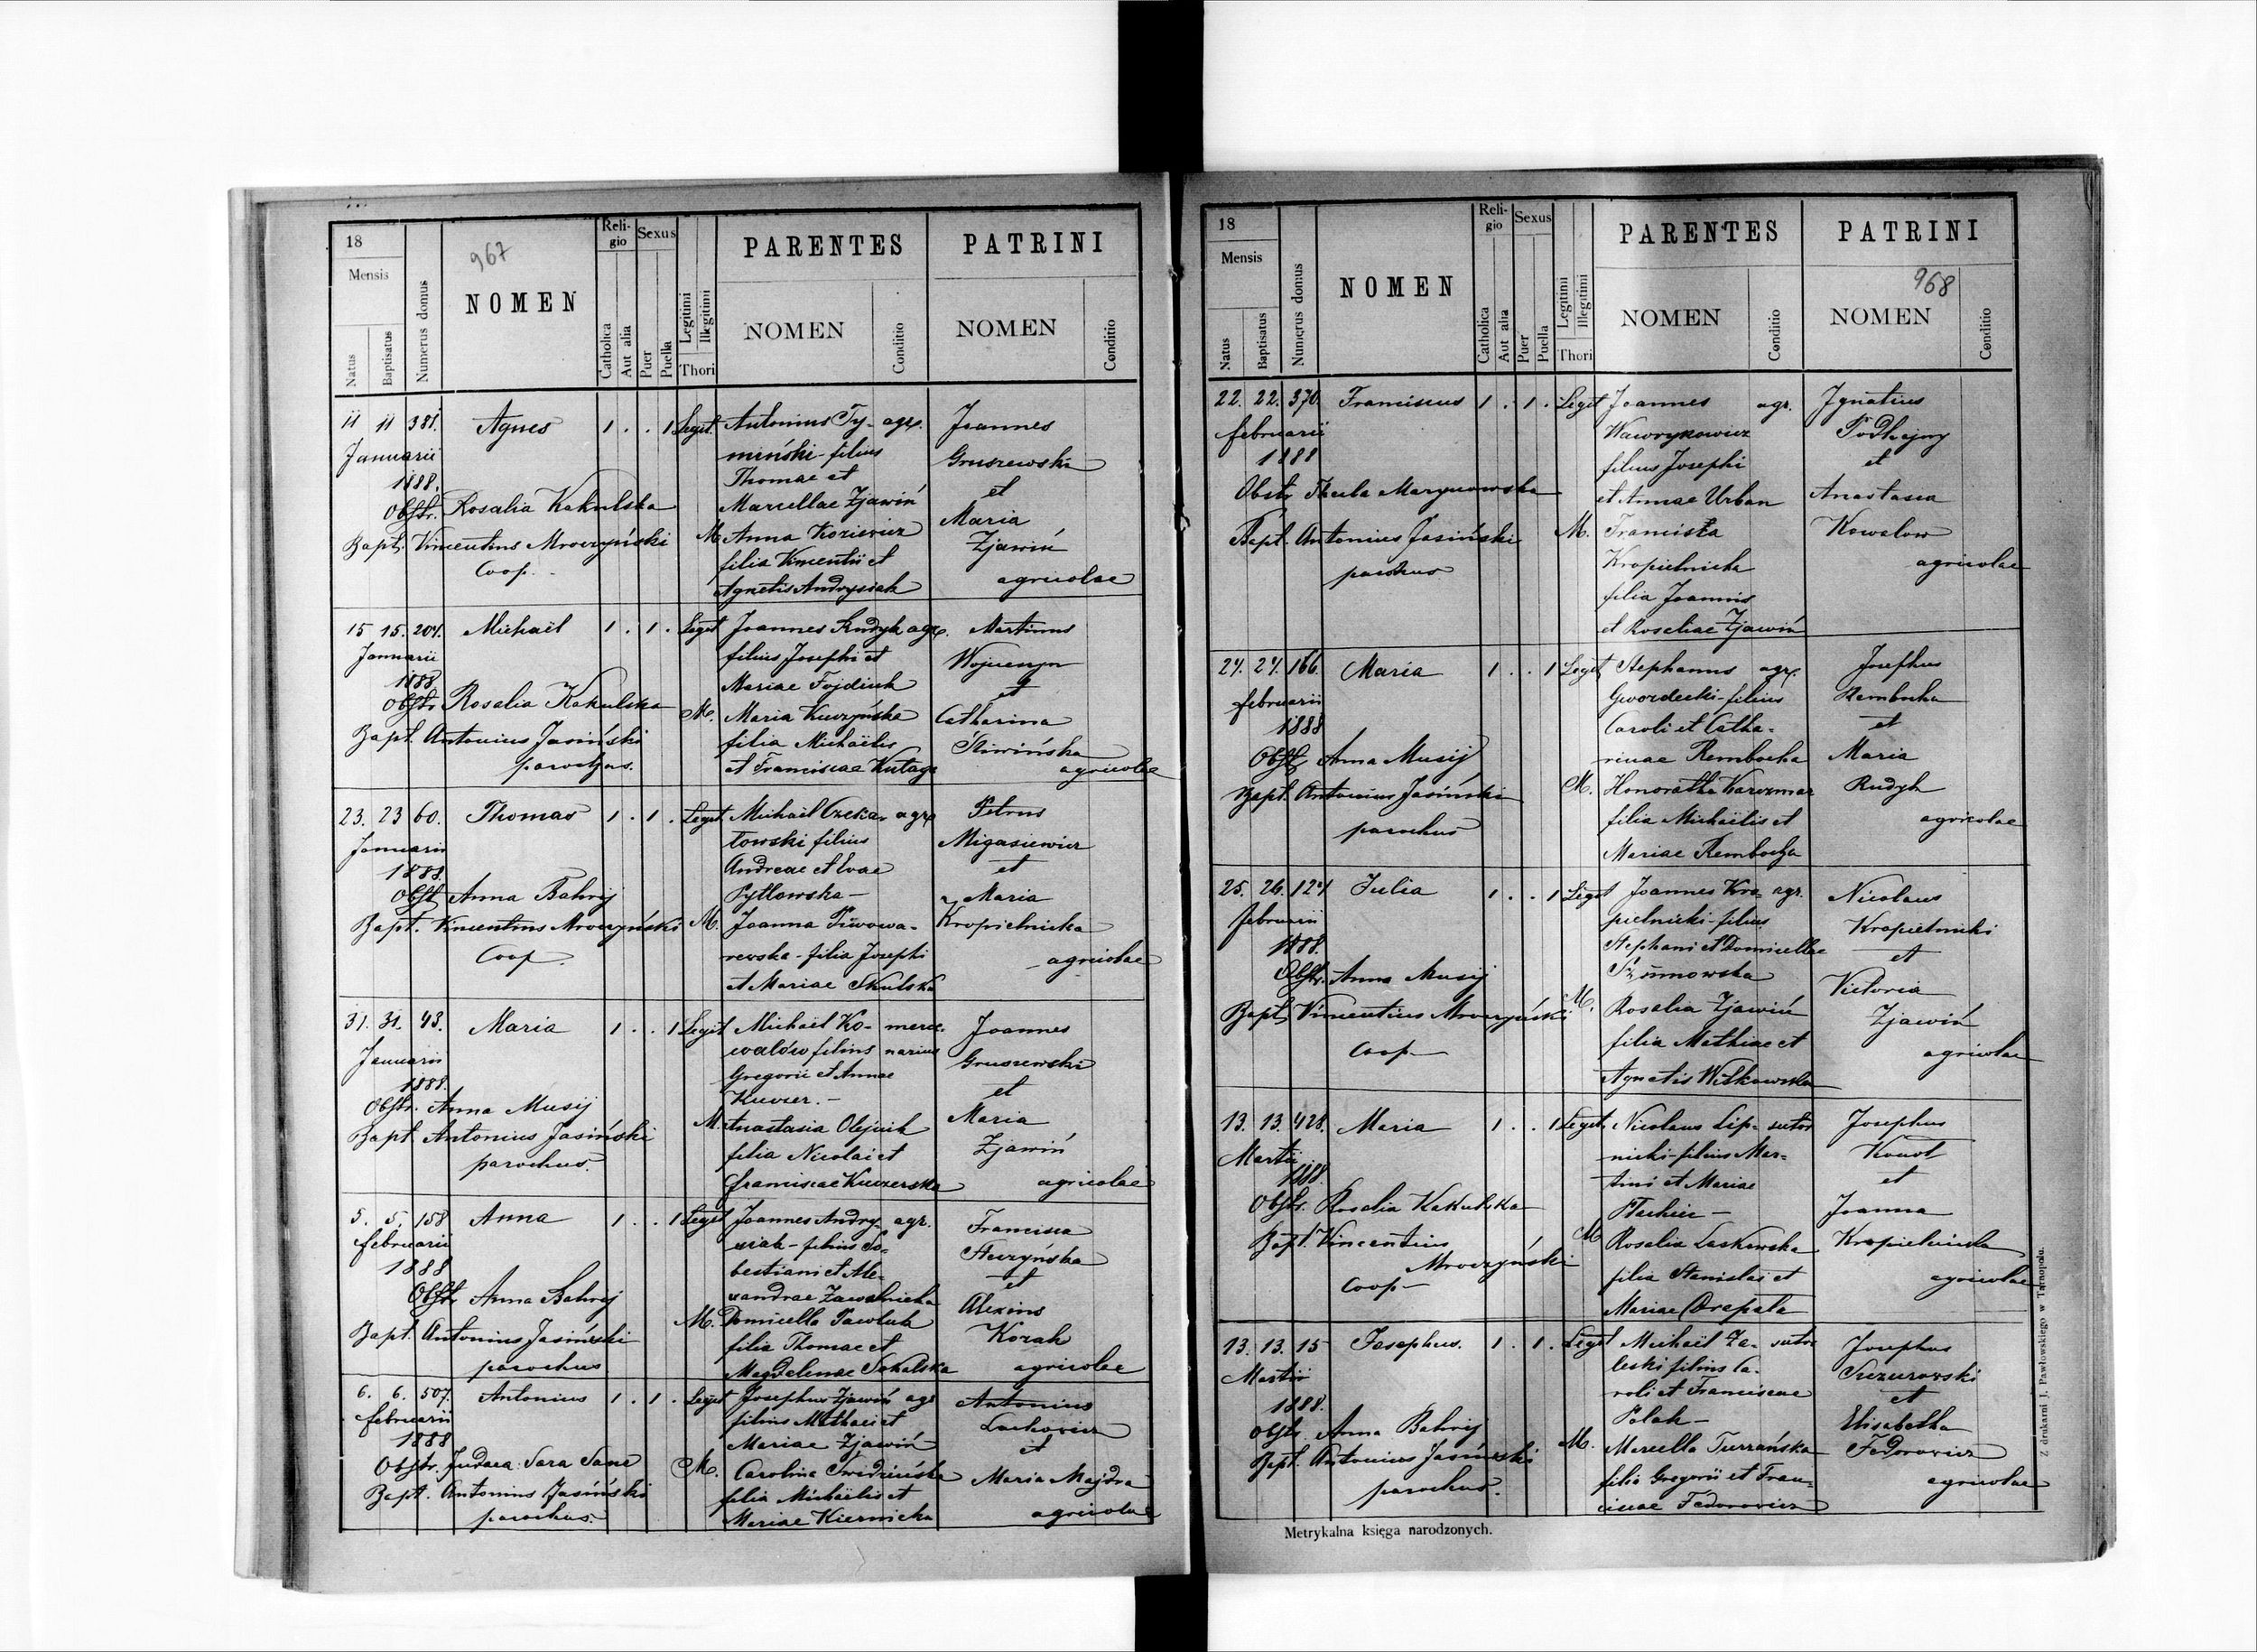 967
18
Mensis
Natus
Baptisatus
Numerus domus
NOMEN
Religio
Catholica
Aut alia
Sexus
Puer
Puella
Legitimi
Illegitimi
Thori
PARENTES
NOMEN
Conditio
PATRINI
NOMEN
Conditio
11 11 381. Agnes 1 . . 1 Legit. Antonius Ty- agr. Joannes
Januarii miński-filius Gruszewski
1888. Thomae et et
Obstr. Rosalia Kakulska Marcellae Zjawiń Maria
Bapt. Vincentius Mroczyński M. Anna Koziewicz Zjawiń
Coop. filia Vincentii et agricolae
Agnetis Andrysiak
15 15. 204. Michaël 1 . 1 . Legit Joannes Rudyk agr. Martinus
Januarii filius Josephi et
1888 Mariae Fojdiuk et
Obstr Rosalia Kakulska M. Maria Kuczyńska Catharina
Bapt. Antonius Jasiński filia Michaëlis Śliwińska
parochus. et Franciscae agricolae
23. 23 60. Thomas 1 . 1 . Legit Michaël agr Petrus
Januarii towski filius Migasiewicz
1888. Andreae et Evae et
Obst Anna Bahrij Pytlowska- Maria
Bapt. Vincentius Mroczyński M. Joanna Piwowa- Kropielnicka
Coop. rowska-filia Josephi agricolae
et Mariae Skulska
31. 31. 43. Maria 1 . . 1 Legit Michaël Ko- merce- Joannes
Januarii walów filius narius Gruszewski
1888. Gregorii et Annae et
Obstr. Anna Musij Maria
Bapt Antonius Jasiński M. Anastasia Olejnik Zjawiń
parochus. filia Nicolai et agricolae
Franciscae Kuczerska
5. 5. 158 Anna 1 . . 1 Legit Joannes Andry- agr. Francisca
februarii siak-filius Se-
1888 bestiani et Ale- et
Obstr Anna Bahrij xandrae Zawalnicka Alexius
Bapt. Antonius Jasiński M. Domicella Pawluk Kozak
parochus filia Thomae et agricolae
Magdalenae Sokalska
6. 6. 507. Antonius 1 . 1 . Legit Josephus Zjawiń agr Antonius
februarii filius Mathaei et
1888 Mariae Zjawiń et
Obstr. Judaea Sara Sane M. Carolina Maria Majdra
Bapt. Antonius Jasiński filia Michaëlis et agricolae
parochus. Mariae Kiernicka
18
Mensis
Natus
Baptisatus
Numerus domus
NOMEN
Religio
Catholica
Aut alia
Sexus
Puer
Puella
Legitimi
Illegitimi
Thori
PARENTES
NOMEN
Conditio
PATRINI
968
NOMEN
Conditio
22. 22. 370. Franciscus 1 . 1 . Legit Joannes agr. Ignatius
februarii Wawrykowicz
1888 filius Josephi et
Obstr Thecla Marynowska et Annae Urban Anastasia
Bapt. Antonius Jasiński M. Francisca Kowalow
parochus Kropielnicka agricolae
filia Joannis
et Rosaliae Zjawiń
24. 24. 166. Maria 1 . . 1 Legit Stephanus agr. Josephus
februarii Gwozdecki-filius Rembocha
1888 Caroli et Catha- et
Obstr Anna Musij rinae Rembocha Maria
Bapt. Antonius Jasiński M. Honoratha Karczmar Rudyk
parochus filia Michaëlis et agricolae
Mariae Rembocha
25. 26. 124 Julia 1 . . 1 Legit Joannes Kro- agr. Nicolaus
februarii pielnicki-filius Kropielnicki
1888. Stephani et Domicellae et
Obstr. Anna Musij Victoria
Bapt. Vincentius Mroczyński M. Rosalia Zjawiń Zjawiń
Coop- filia Mathiae et agricolae
Agnetis Witkowska
13. 13. 428. Maria 1 . . 1 Legit. Nicolaus Lip- sutor Josephus
Martii nicki-filius Mar-
1888. tini et Mariae et
Obstr. Rosalia Kakulska Joanna
Bapt. Vincentius M Rosalia Laskowska Kropielnicka
Mroczyński filia Stanislai et agricolae
Coop- Mariae
13. 13. 15 Josephus. 1 . 1 . Legit Michaël Za- sutor Josephus
Martii leski filius Ca-
1888. roli et Franciscae et
Obstr. Anna Bahrij Polak- Elisabetha
Bapt. Antonius Jasiński M. Marcella Turzańska Fedorowicz
parochus. filia Gregorii et Fran- agricolae
ciscae Fedorowicz
Metrykalna księga narodzonych.
Z drukarni J. Pawłowskiego w Tarnopolu.